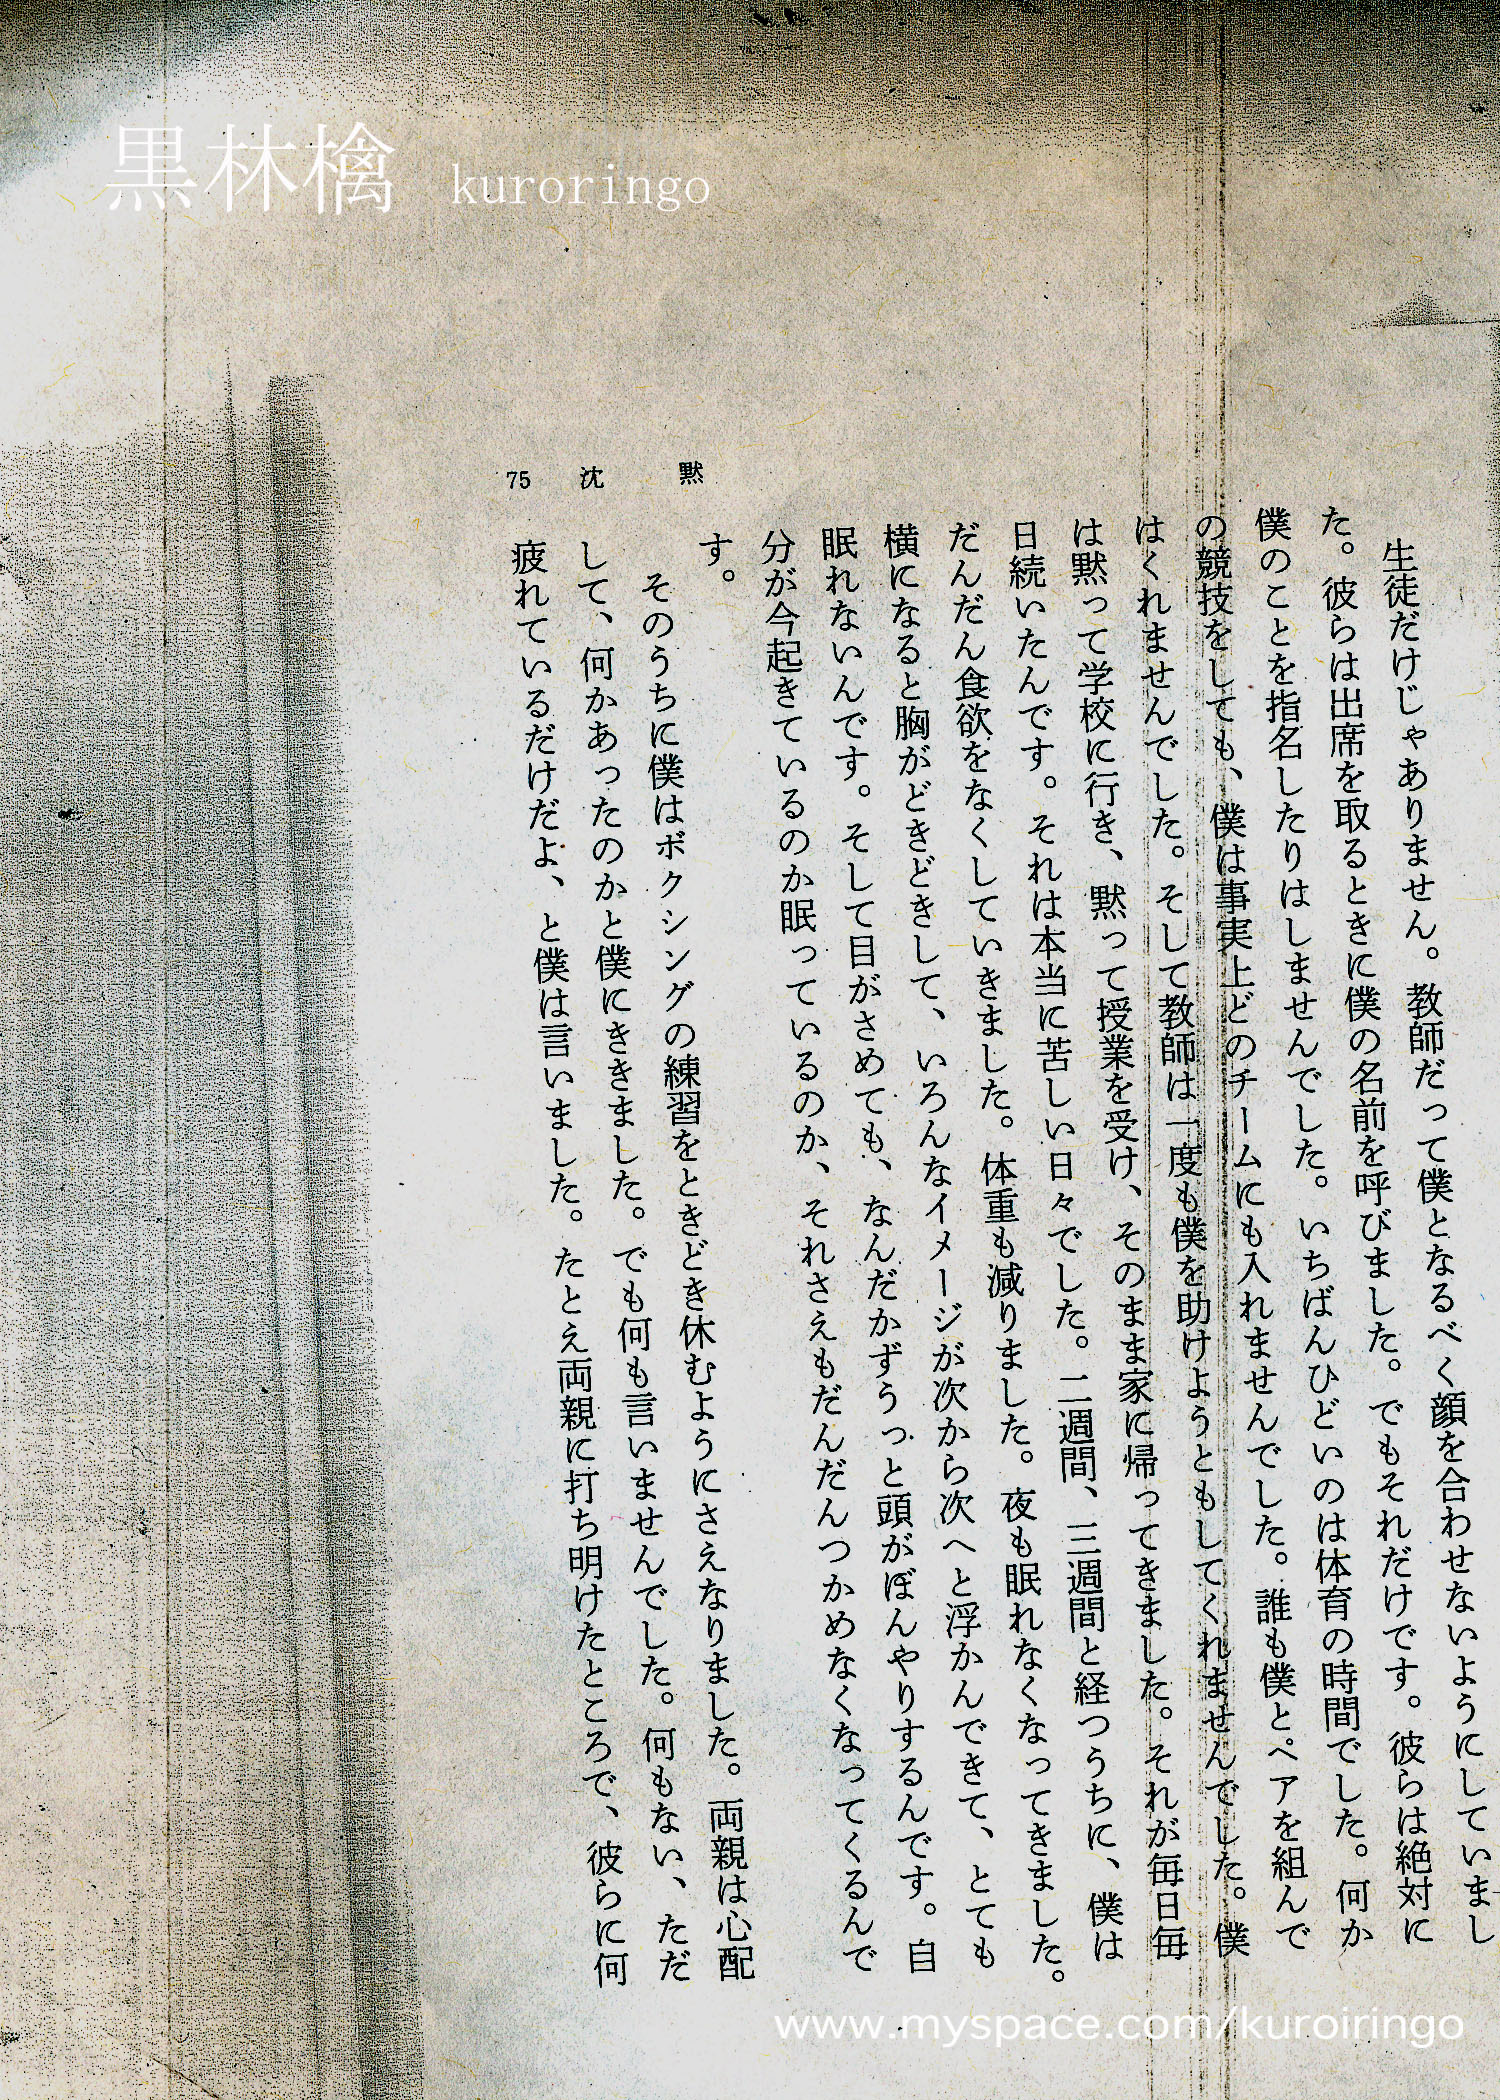 黒林檎 kuroringo
生徒だけじゃありません。教師だって僕となるべく顔を合わせないようにしていまし
た。彼らは出席を取るときに僕の名前を呼びました。でもそれだけです。彼らは絶対に
僕のことを指名したりはしませんでした。いちばんひどいのは体育の時間でした。何か
の競技をしても、僕は事実上どのチームにも入れませんでした。誰も僕とペアを組んで
はくれませんでした。そして教師は一度も僕を助けようともしてくれませんでした。僕
は黙って学校に行き、黙って授業を受け、そのまま家に帰ってきました。それが毎日毎
日続いたんです。それは本当に苦しい日々でした。二週間、三週間と経つうちに、僕は
だんだん食欲をなくしていきました。体重も減りました。夜も眠れなくなってきました。
横になると胸がどきどきして、いろんなイメージが次から次へと浮かんできて、とても
眠れないんです。そして目がさめても、なんだかずうっと頭がぼんやりするんです。自
分が今起きているのか眠っているのか、それさえもだんだんつかめなくなってくるんで
す。
そのうちに僕はボクシングの練習をときどき休むようにさえなりました。両親は心配
して、何かあったのかと僕にききました。でも何も言いませんでした。何もない、ただ
疲れているだけだよ、と僕は言いました。たとえ両親に打ち明けたところで、彼らに何
75 沈 黙
www.myspace.com/kuroiringo